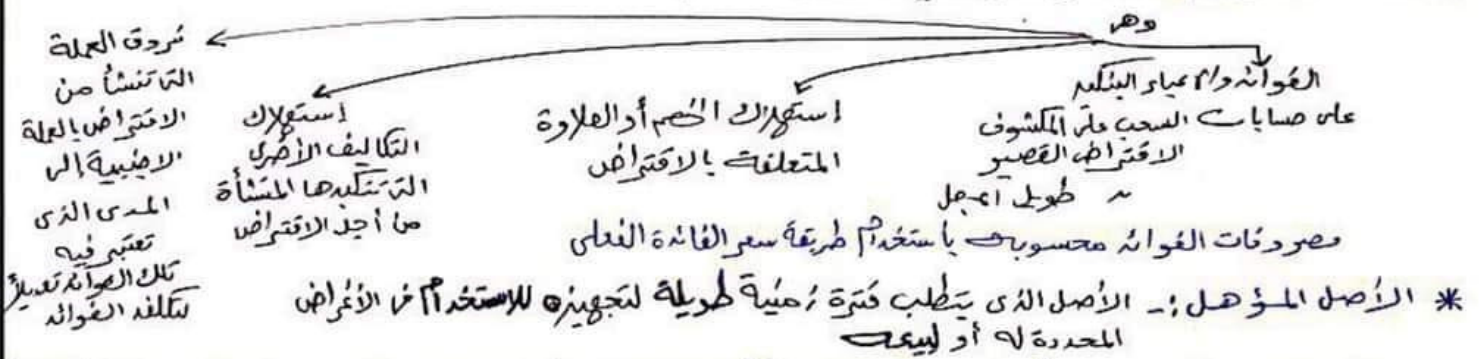 وهى
الفوائد والأعباء البنكيه
على حسابات السحب على المكشوف
الاقتراض القصير
〃 طويل الأجل
إستهلاك الخصم أو العلاوة
المتعلقة بالاقتراض
إستهلاك
التكاليف الأخرى
التى تتكبدها المنشأة
من أجل الاقتراض
فروق العملة
التى تنشأ من
الاقتراض بالعملة
الاجنبية إلى
المدى الذى
تعتبر فيه
تلك الفوائد تعديلاً
لتكلفه الفوائد
مصروفات الفوائد محسوبه بأستخدام طريقة سعر الفائدة الفعلى
* الأصل المؤهل :- الأصل الذى يتطلب فترة زمنية طويلة لتجهيزه للاستخدام فى الأغراض
المحددة له أو لبيعه